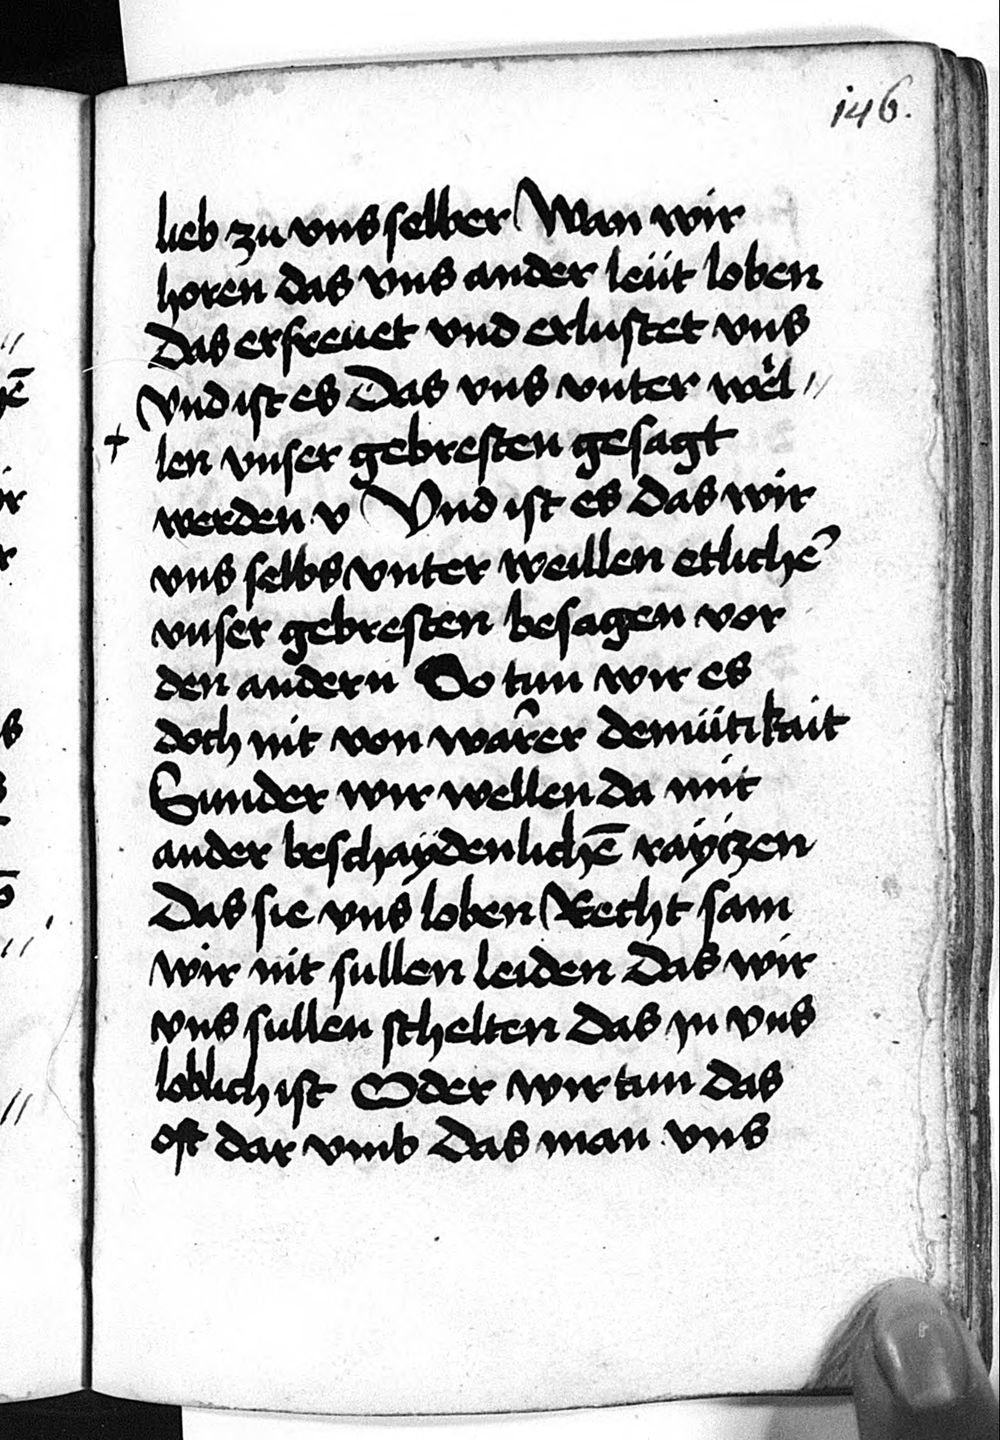 146.
lieb zu vns selber Wan wir
horen das vns ander leüt loben
Das erfreuet vnd erlustet vns
Vnd ist es Das vns vnter wël //
+ len vnser gebresten gesagt
werden v Vnd ist es das wir
vns selbs vnter weillen etlichē
vnser gebresten besagen vor
den andern So tun wir es
doch nit von warer demütikait
Sunder wir wellen da mit
ander beschaydenlichē raytzen
Das sie vns loben Recht sam
wir nit sullen leiden Das wir
vns sullen schelten Das yn vns
loblich ist Oder wir tun das
oft dar vmb Das man vns